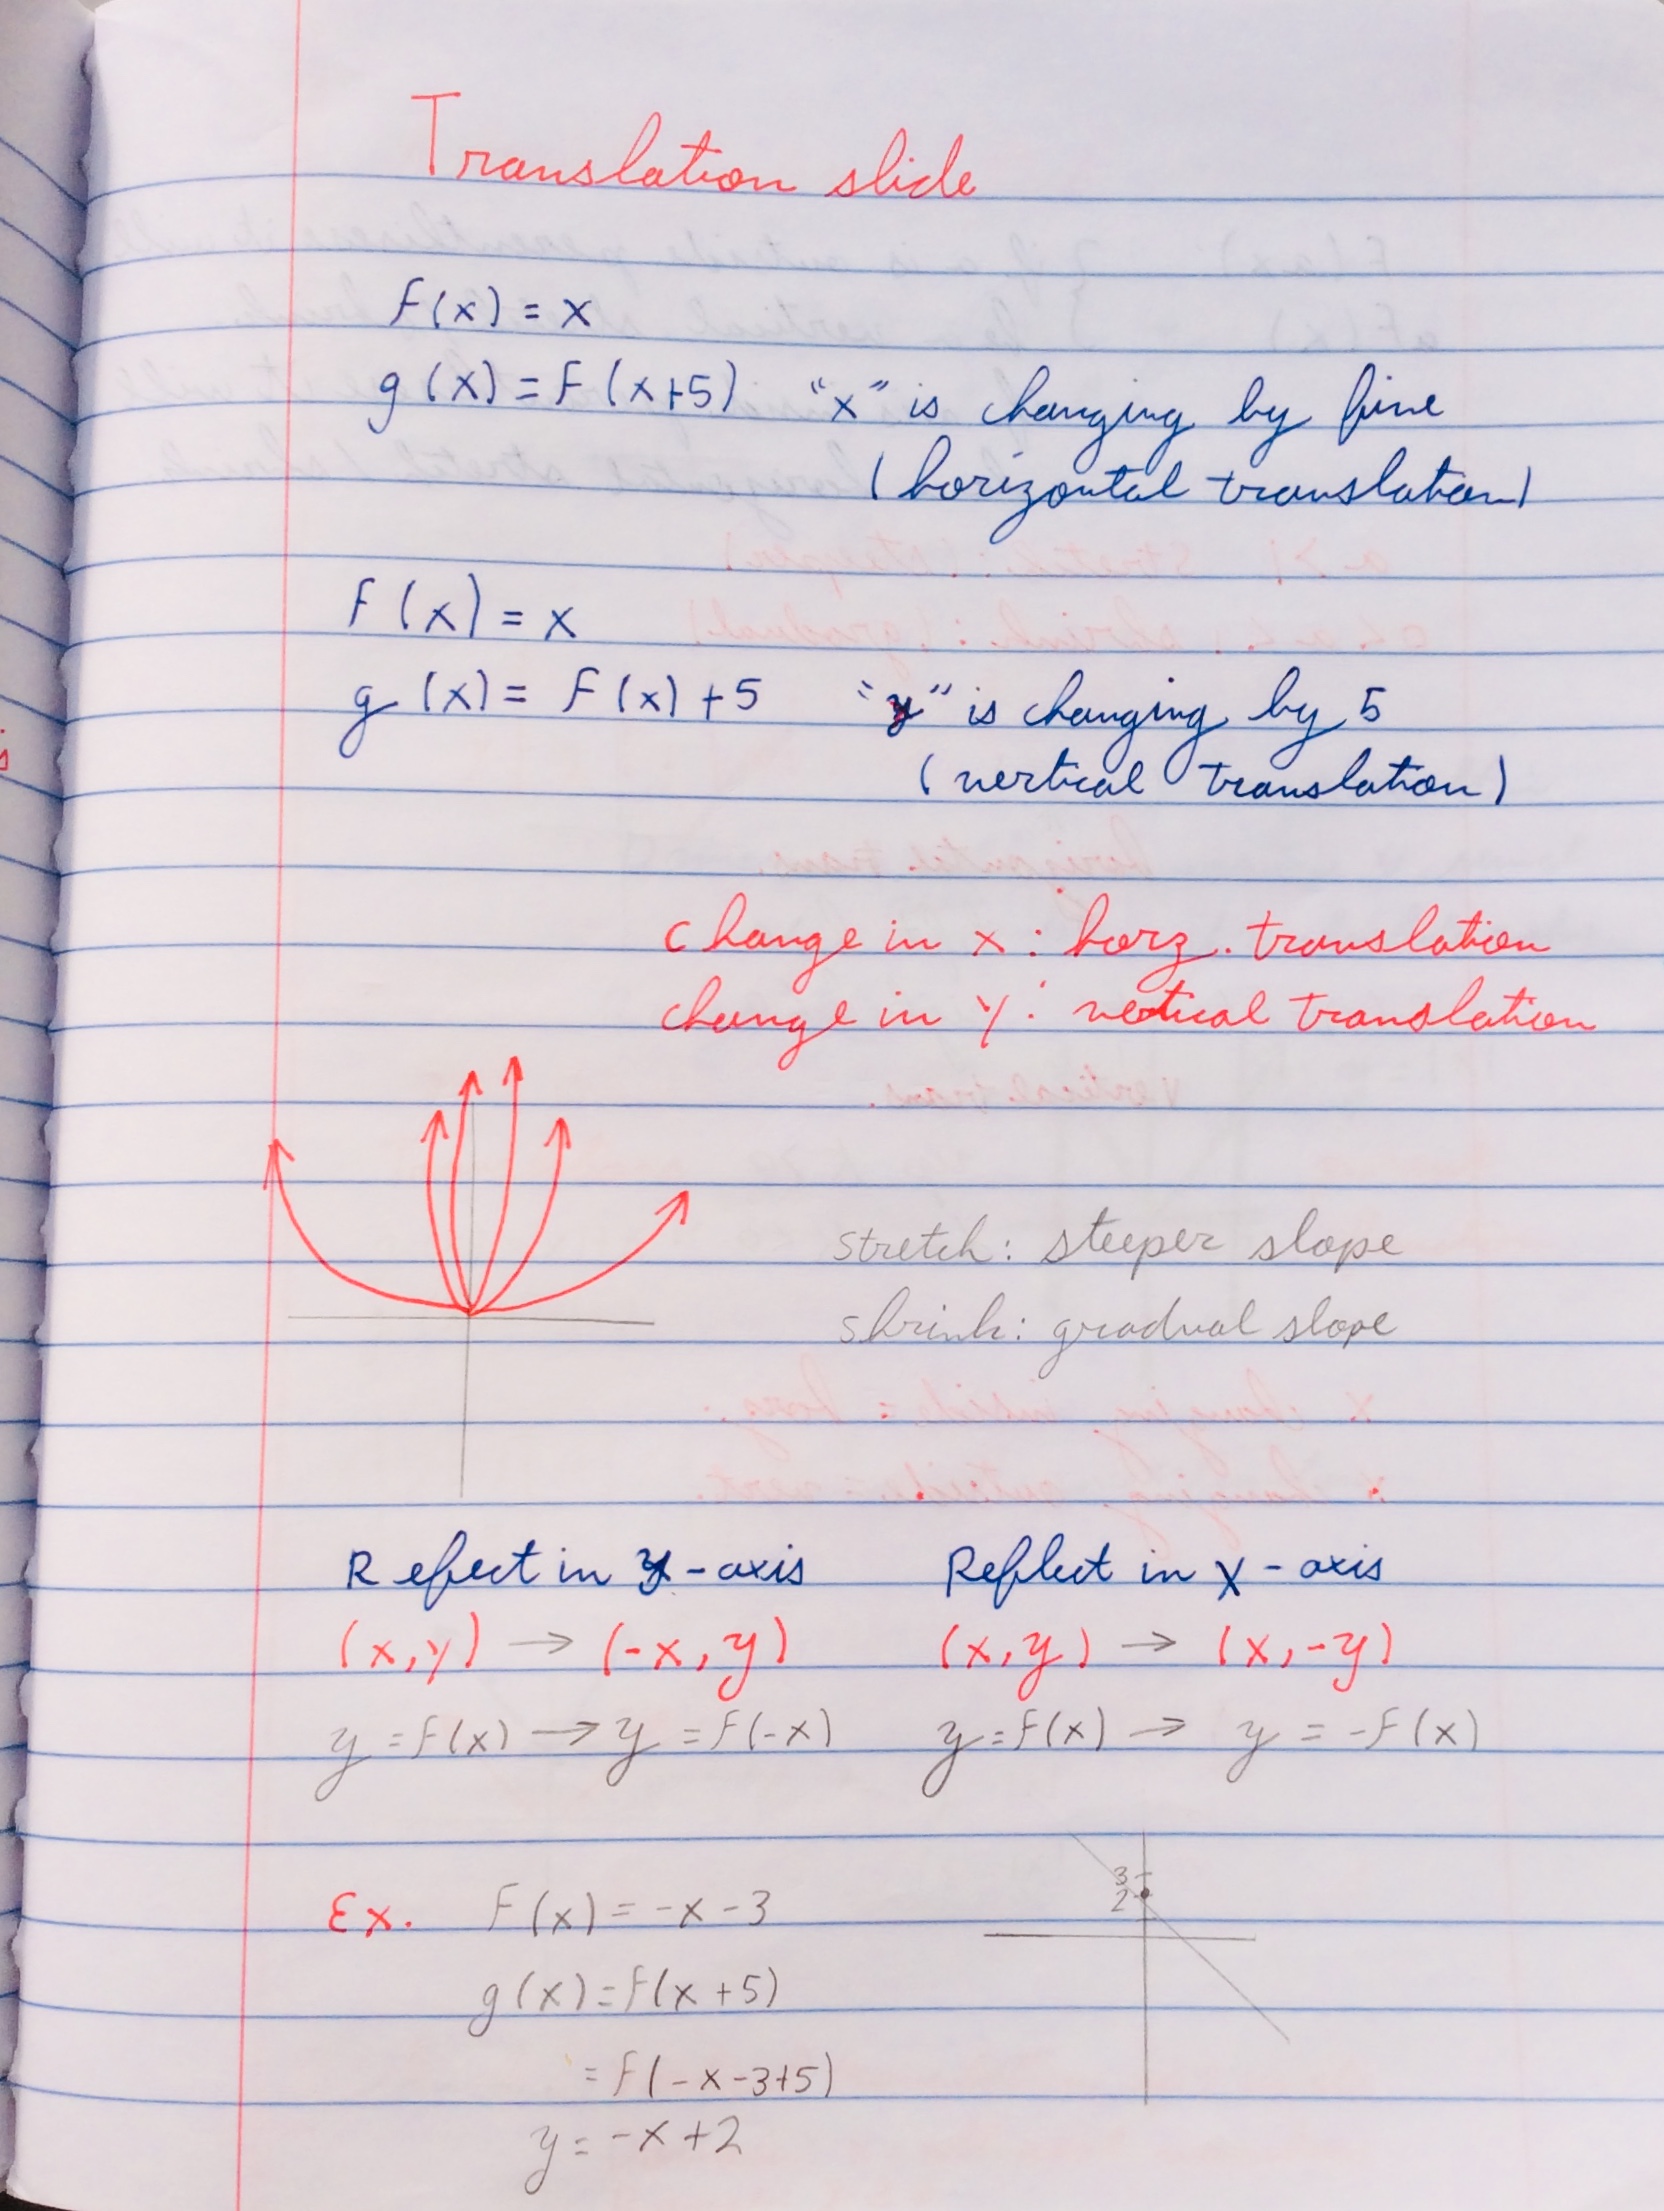 Translation slide
F(x) = x
g(x) = F(x+5) "x" is changing by five
(horizontal translation)
F(x) = x
g(x) = F(x) + 5 "y" is changing by 5
(vertical translation)
change in x : horz. translation
change in y : vertical translation
stretch: steeper slope
shrink: gradual slope
Reflect in y-axis Reflect in x-axis
(x,y) → (-x,y) (x,y) → (x,-y)
y=F(x) → y=F(-x) y=F(x) → y = -F(x)
3
2
Ex. F(x) = -x-3
g(x)=F(x+5)
=F(-x-3+5)
y=-x+2